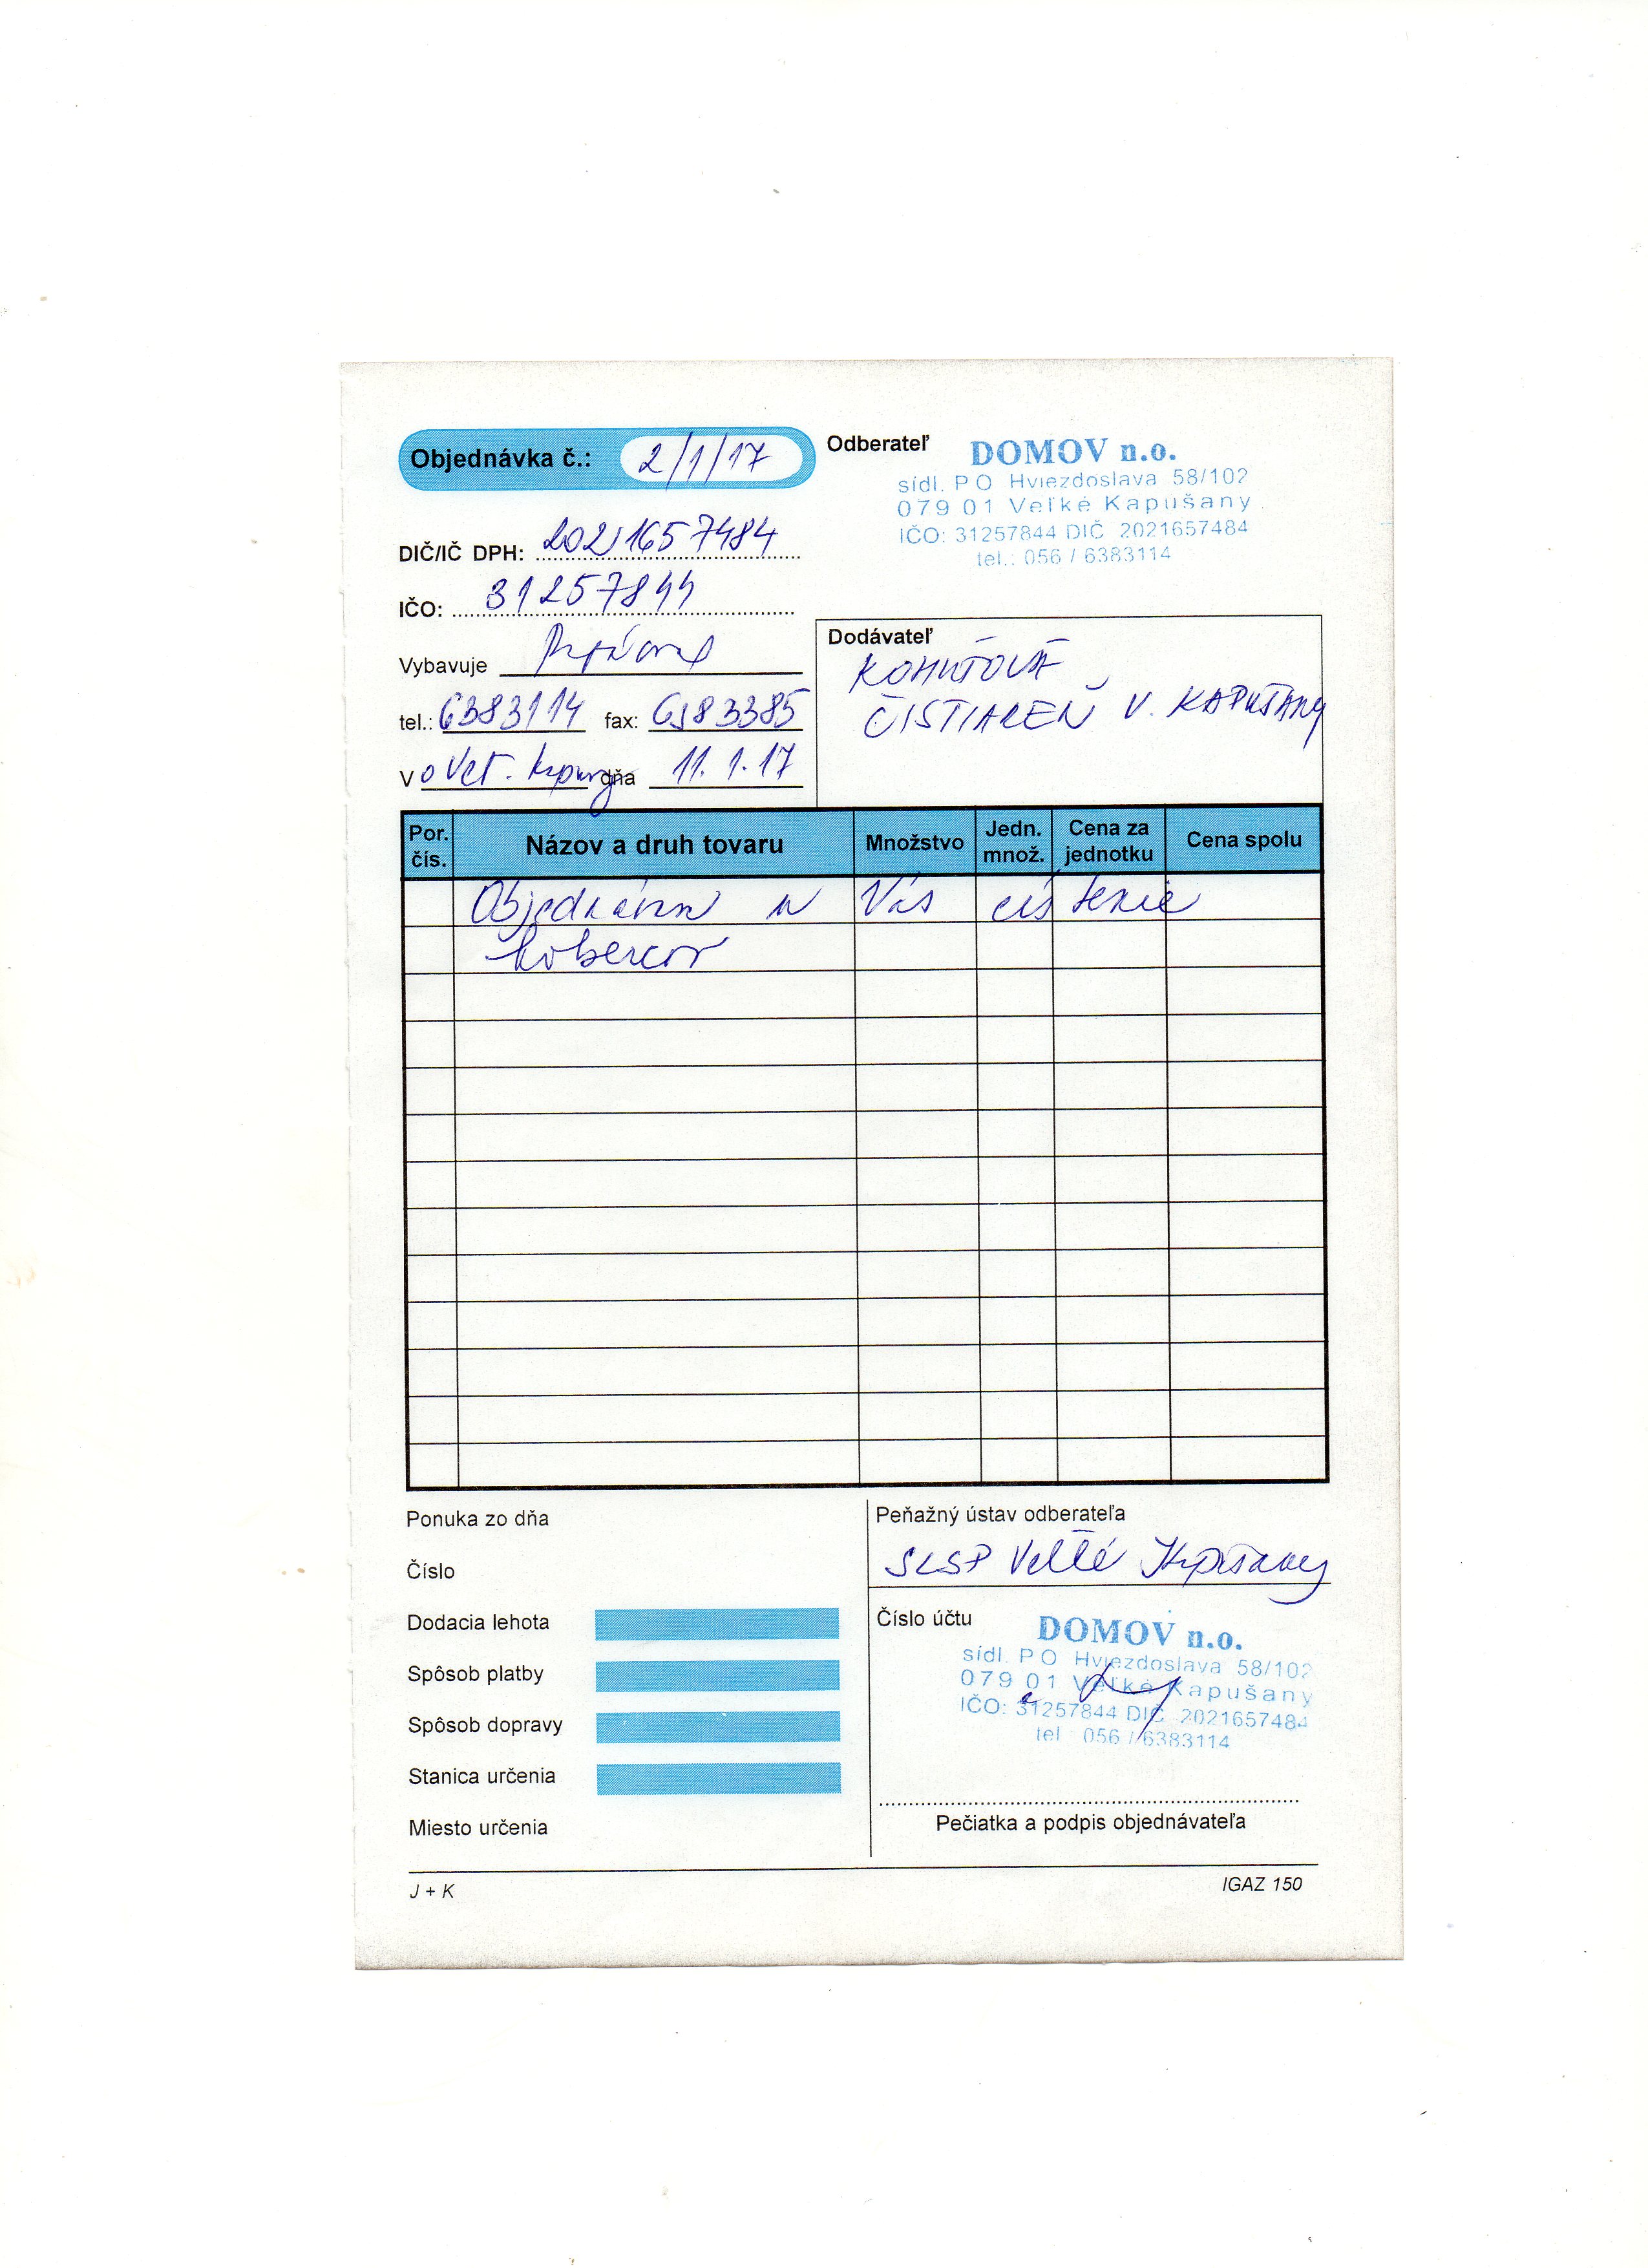 Objednávka č.: 2/1/17
Odberateľ
DOMOV n.o.
sídl. PO Hviezdoslava 58/102
079 01 Veľké Kapušany
IČO: 31257844 DIČ 2021657484
tel.: 056 / 6383114
DIČ/IČ DPH: 2021657484
IČO: 31257844
Vybavuje
tel.: 6383114 fax: 6383385
V dňa 11.1.17
Dodávateľ
KOHÚTOVÁ
ČISTIAREŇ V. KAPUŠANY
Por. čís. Názov a druh tovaru Množstvo Jedn. množ. Cena za jednotku Cena spolu
Objednávam u Vás čistenie
kobercov
Ponuka zo dňa
Číslo
Dodacia lehota
Spôsob platby
Spôsob dopravy
Stanica určenia
Miesto určenia
Peňažný ústav odberateľa
SLSP Veľké Kapušany
Číslo účtu
DOMOV n.o.
sídl. PO Hviezdoslava 58/102
079 01 Veľké Kapušany
IČO: 31257844 DIČ 2021657484
tel.: 056 / 6383114
Pečiatka a podpis objednávateľa
J + K
IGAZ 150